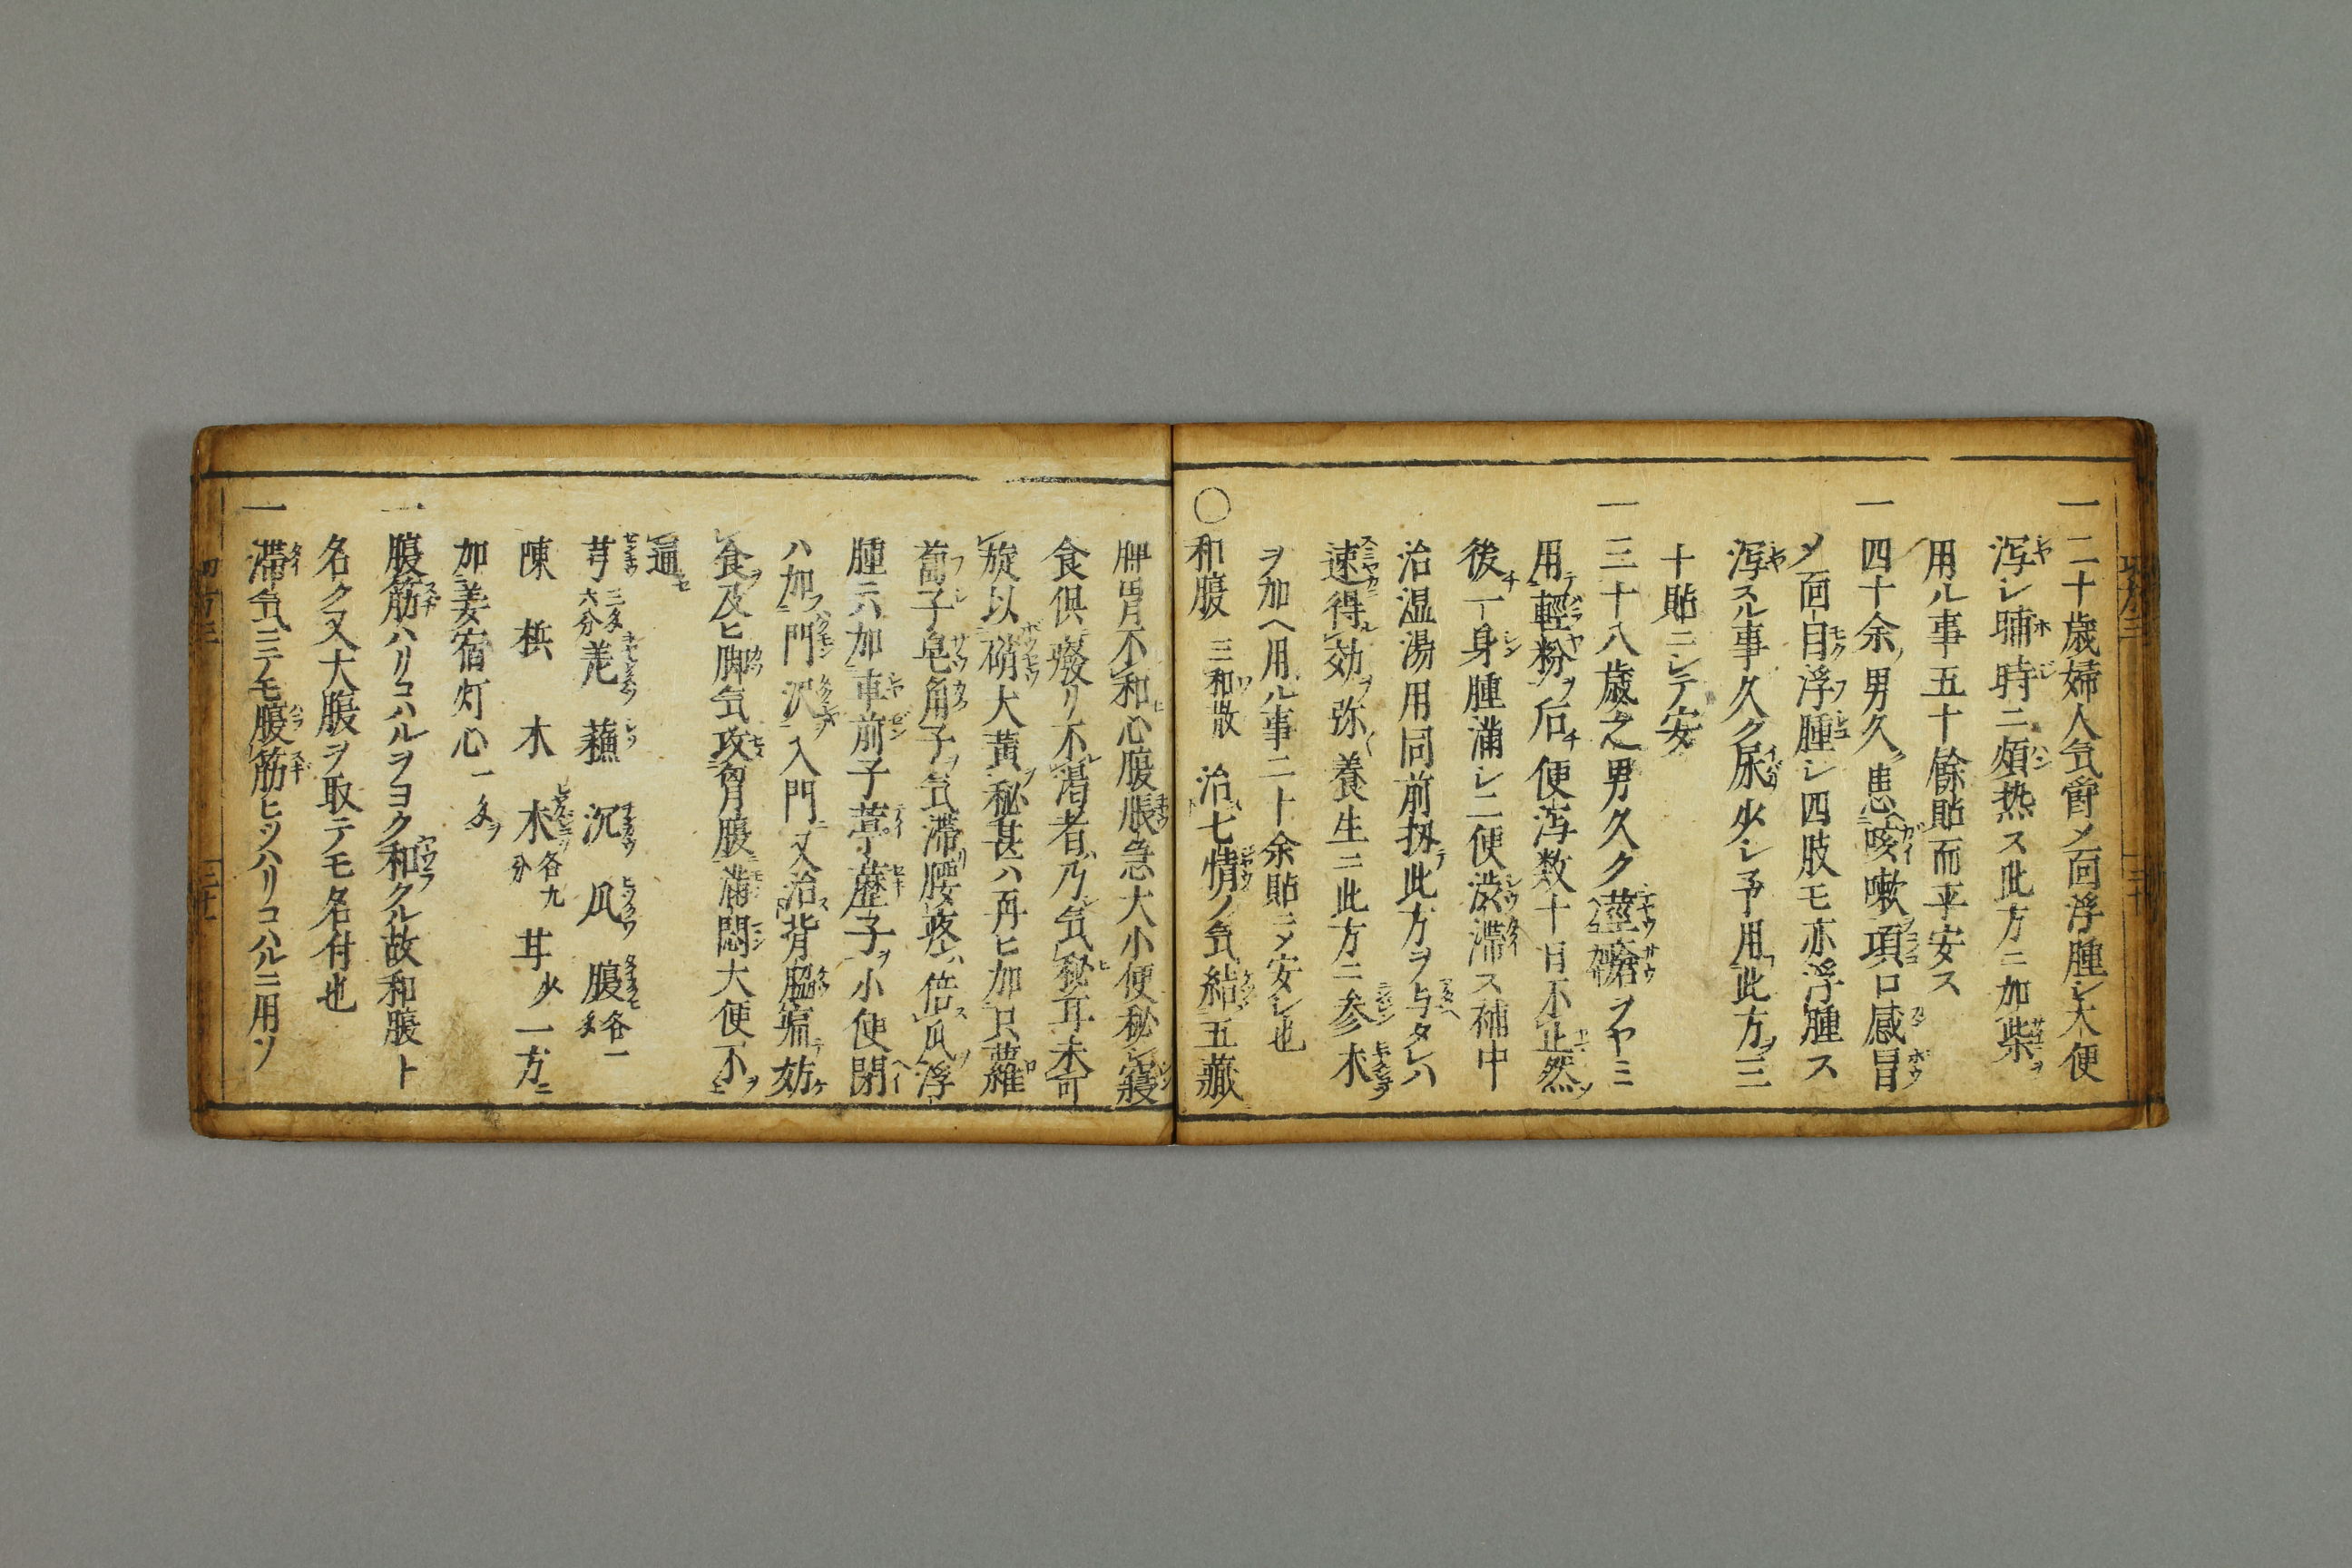 一二十歳婦人気欝メ面浮腫シ大便
泻レ晡時ニ煩热ス此方ニ加柴
用ル事五十餘貼而平安ス
一四十余男久患咳嗽項口感冒
メ面目浮腫シ四肢モ亦浮腫ス
泻スル事久ク尿少レ予用此方三
十貼ニシテ安
一三十八歳之男久ク莖瘡ヲヤミ
用輕粉后便泻数十日不止然
後一身腫滿シ二便渋滞ス補中
治湿湯用同前扨此方ヲ与タレハ
速得効弥養生ニ此方ニ参木
ヲ加ヘ用ル事二十余貼ニメ安シ也
〇和腹 三和散 治七情ノ気結五藏
脾胃不和心腹脹急大小便秘シ寢
食倶癈リ不渇者乃気秘耳未可
旋以硝大黄秘甚ハ再ヒ加只蘿
蔔子皂角子気滞腰疼ハ倍瓜浮
腫六加車前子葶藶子小便閉
ハ加門沢入門又治背脇痛妨
食及ヒ脚気攻胷腹滿悶大便不
通
芎三匁六分羗 蘓 沉 瓜 腹各一匁
陳 梹 木 木各九分 甘少 一方ニ
加姜宿灯心一匁
一腹筋ハリコハルヲヨク和クル故和腹ト
名ク又大腹ヲ取テモ名付也
一滞気ニテモ腹筋ヒツハリコハルニ用ソ